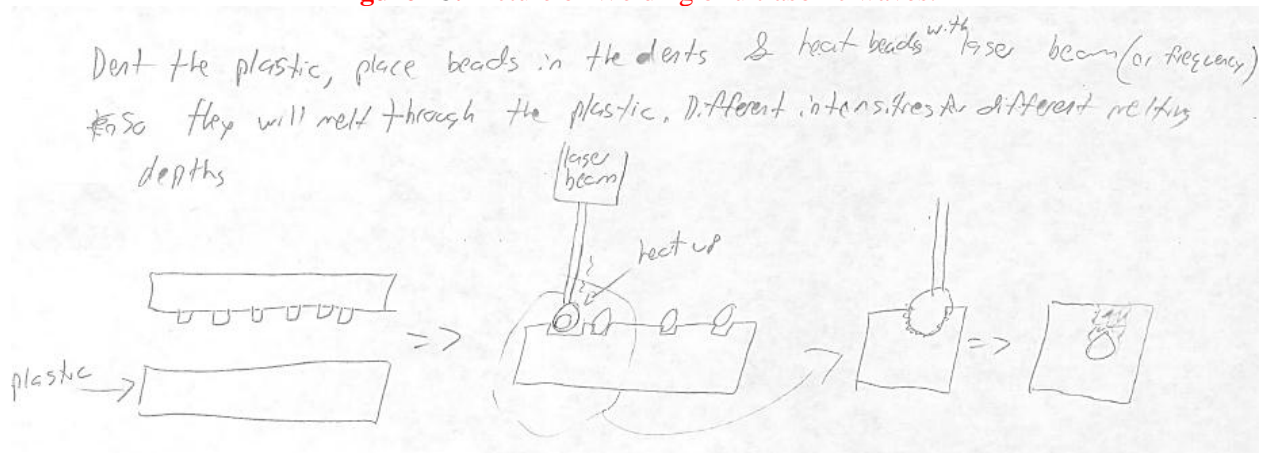 Dent the plastic, place beads in the dents & heat beads with laser beam (or frequency)
so they will melt through the plastic. Different intensities for different melting
depths
laser
beam
heat up
=>
=>
plastic